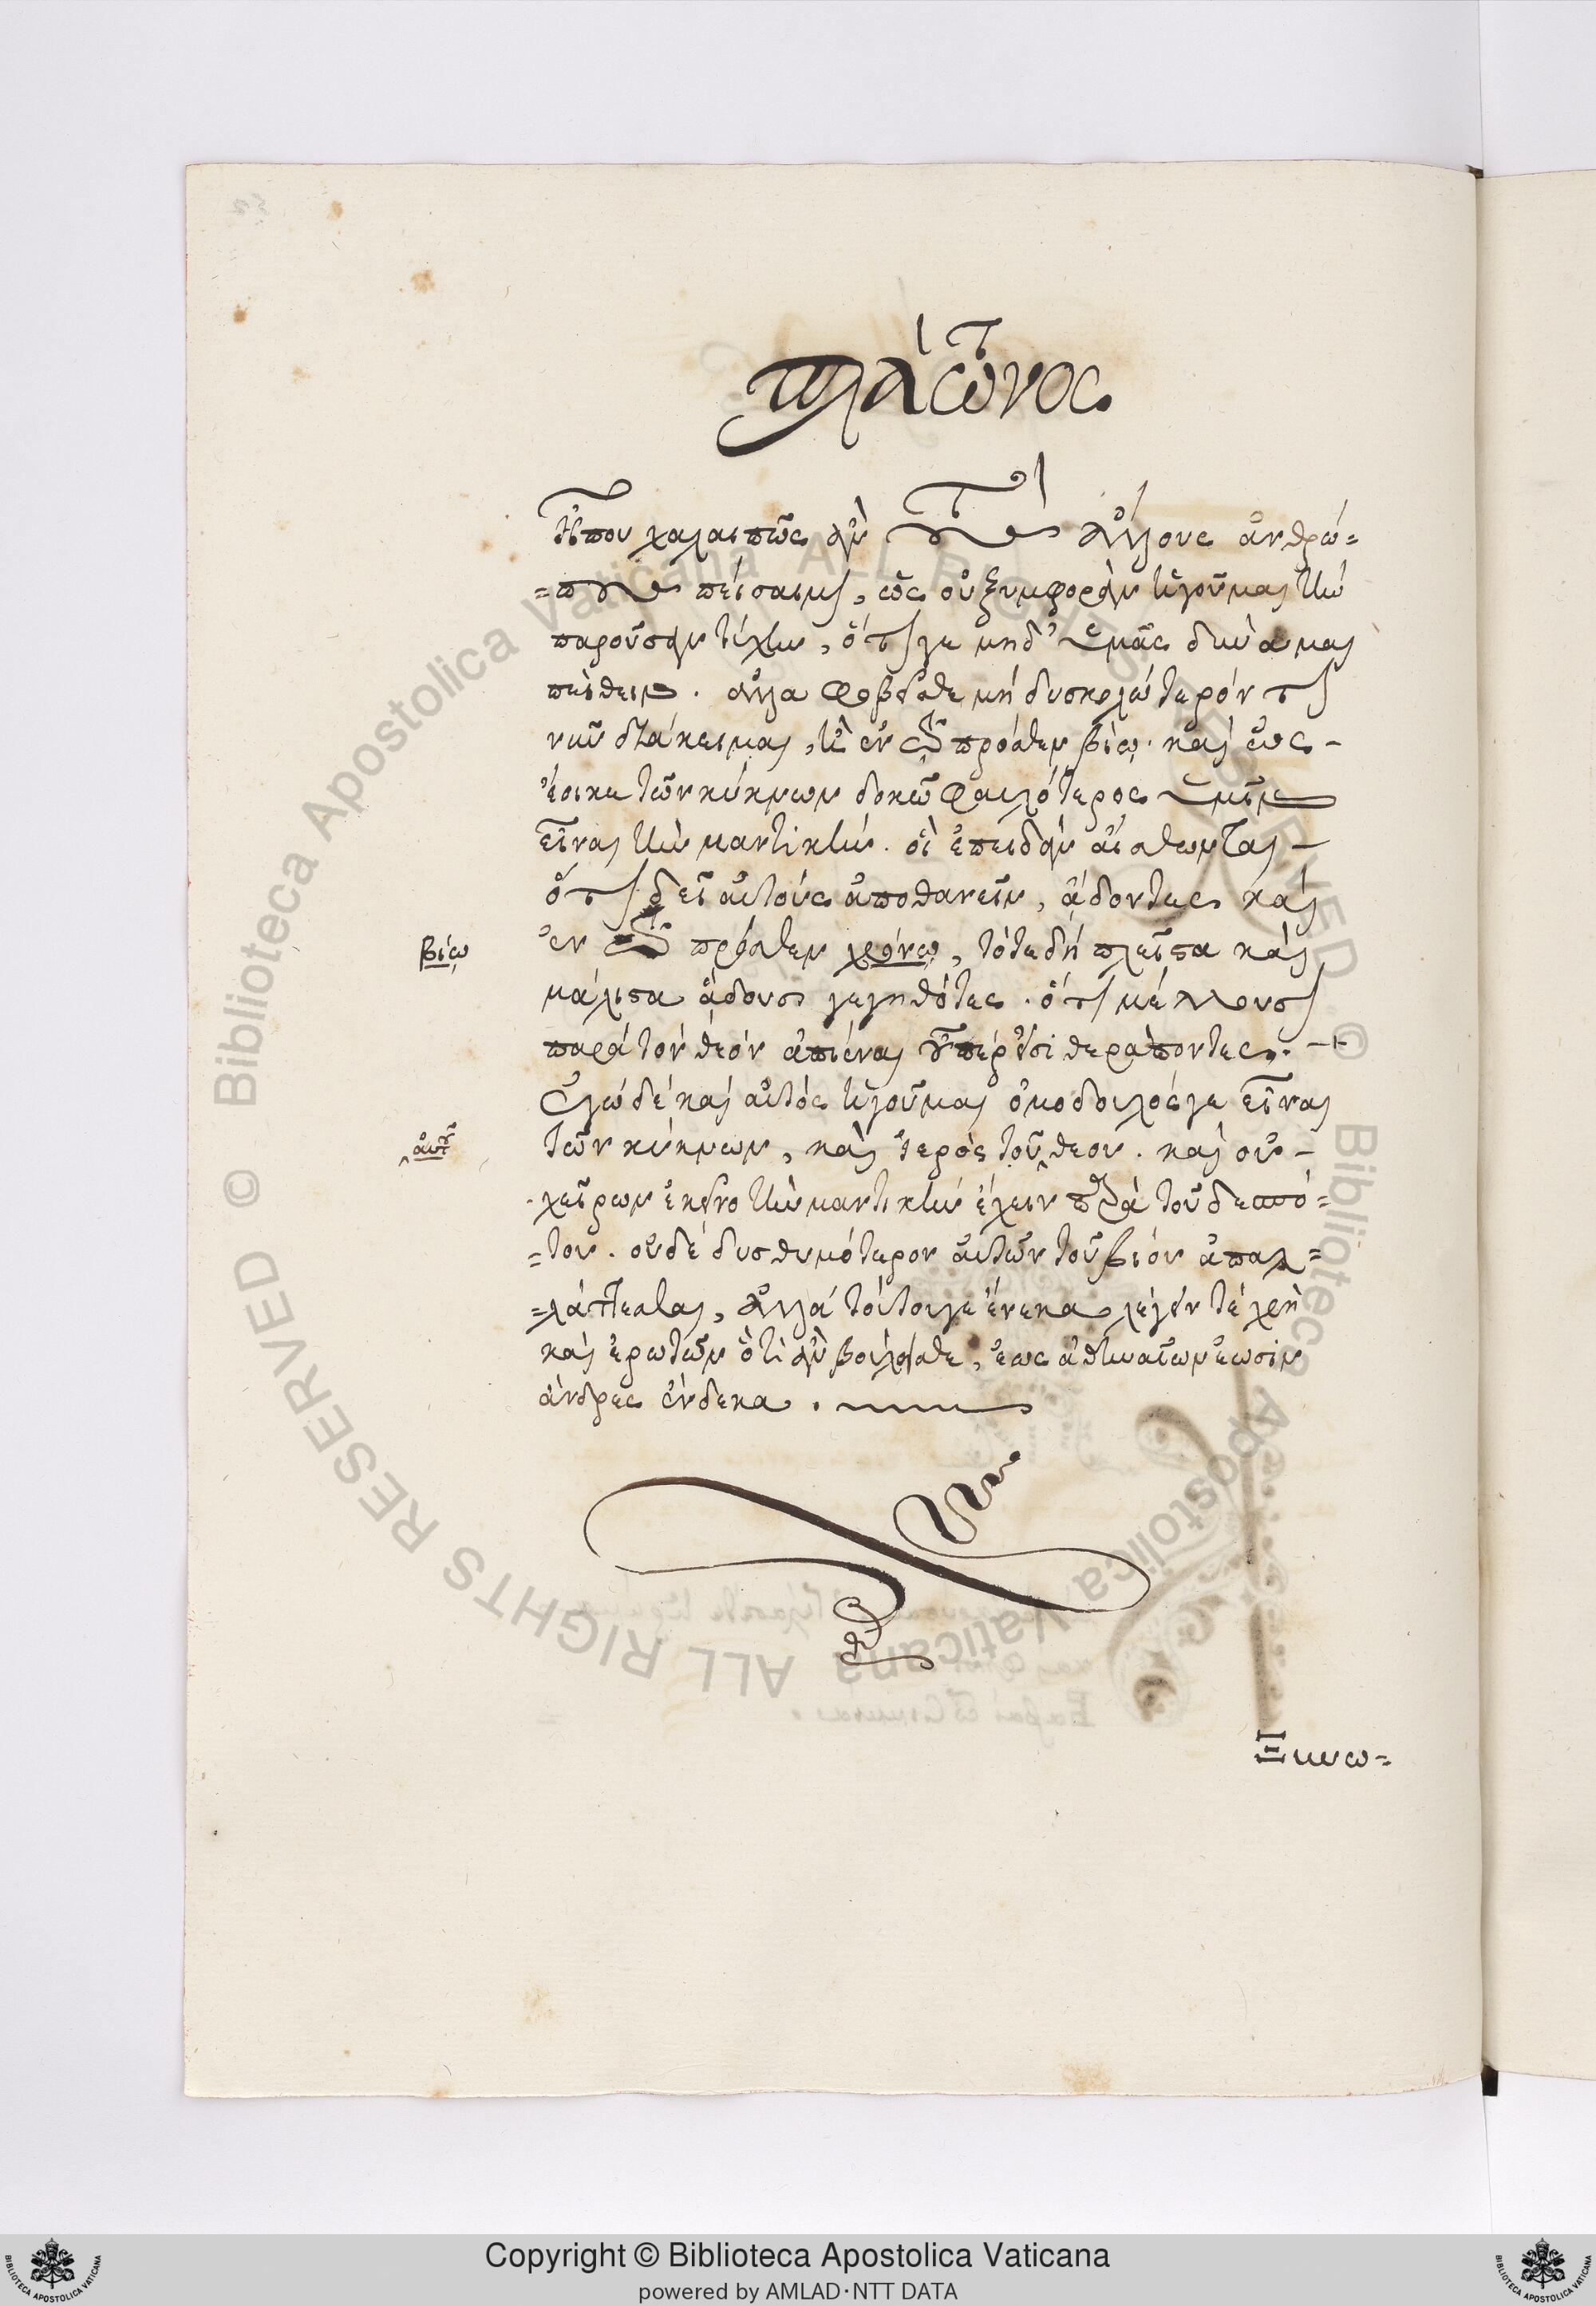 πλάτωνος
Ἦπου χαλαιπῶς ἂν τοὺς ἄλλους ἀνθρώ=
=πους πείσαιμι, ὡς οὐ ξυμφορὰν ἡγοῦμαι τὴν
παροῦσαν τύχην, ὅτι γε μηδ' ὑμᾶς δύναμαι
πείθειν. ἀλλὰ φοβεῖσθε μὴ δυσκολώτερόν τι
νῦν διάκειμαι, ἢ ἐν τῷ πρόσθεν βίῳ. καὶ ὡς -
ἔοικε τῶν κύκνων δοκῶ φαυλότερος ὑμῖν
εἶναι τὴν μαντικήν. οἳ ἐπειδὰν αἴσθωνται -
ὅτι δεῖ αὐτοὺς ἀποθανεῖν, ᾄδοντες καὶ
βίῳ
ἐν τῷ πρόσθεν χρόνῳ, τότε δὴ πλεῖστα καὶ
μάλιστα ᾄδουσι γεγηθότες. ὅτι μέλλουσι
παρὰ τὸν θεὸν ἀπιέναι οὗπέρ εἰσι θεράποντες. -+
Ἐγὼ δὲ καὶ αὐτὸς ἡγοῦμαι ὁμόδουλός γε εἶναι
αὐτοῦ
τῶν κύκνων, καὶ ἱερὸς τοῦ θεου. καὶ οὐ -
χεῖρων ἐκείνο τὴν μαντικὴν ἔχειν παρὰ τοῦ δεσπό=
=του. οὐδὲ δυσθυμότερον αὐτῶν τοῦ βίου ἀπαλ=
=λάττεσθαι, ἀλλὰ τούτου γε ἕνεκα λέγειν τὲ χρὴ
καὶ ἐρωτᾶν ὅτι ἂν βούλησθε, ἕως ἀθηναίων ἐῶσιν
ἄνδρες ἕνδεκα.
Ξενω=
Copyright © Biblioteca Apostolica Vaticana
powered by AMLAD·NTT DATA
© Biblioteca Apostolica Vaticana ALL RIGHTS RESERVED © Biblioteca Apostolica Vaticana ALL RIGHTS RESERVED